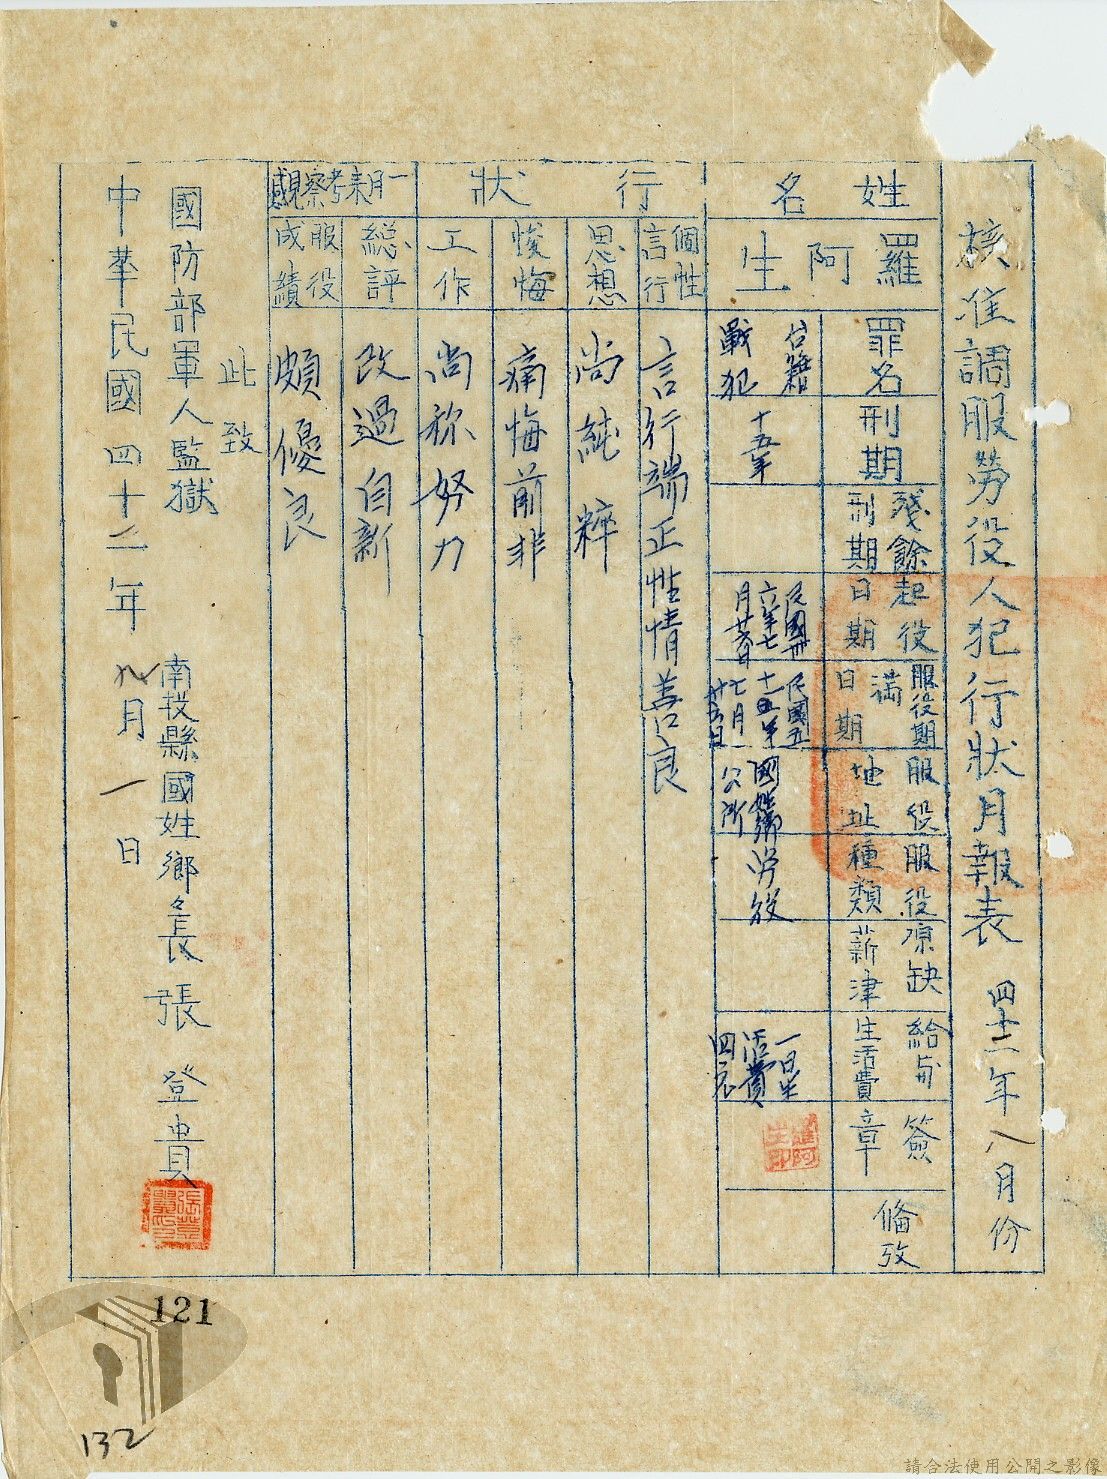 核准調服勞役人犯行狀月報表 四十二年八月份
姓名
羅阿生
罪名
台籍戰犯
刑期
十五年
殘餘刑期
起役日期
民國卅六年七月廿六日
服役期滿日期
民國五十一年七月廿五日
服役地址
國姓鄉公所
服役種類
勞役
原缺薪津
給与生活費
一日生活費四元
簽章
羅阿生印
備攷
行狀
個性言行
言行端正性情善良
思想
尚純粹
悛悔
痛悔前非
工作
尚称努力
一月來考察觀感
總評
改過自新
服役成績
頗優良
此致
國防部軍人監獄
南投縣國姓鄉々長 張登貴
中華民國四十二年九月一日
121
132
請合法使用公開之影像